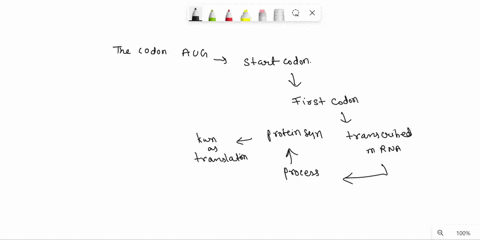 The codon AUG → start codon.
First codon
transcribed
mRNA
process
protein syn
kwn
as
translation
100%